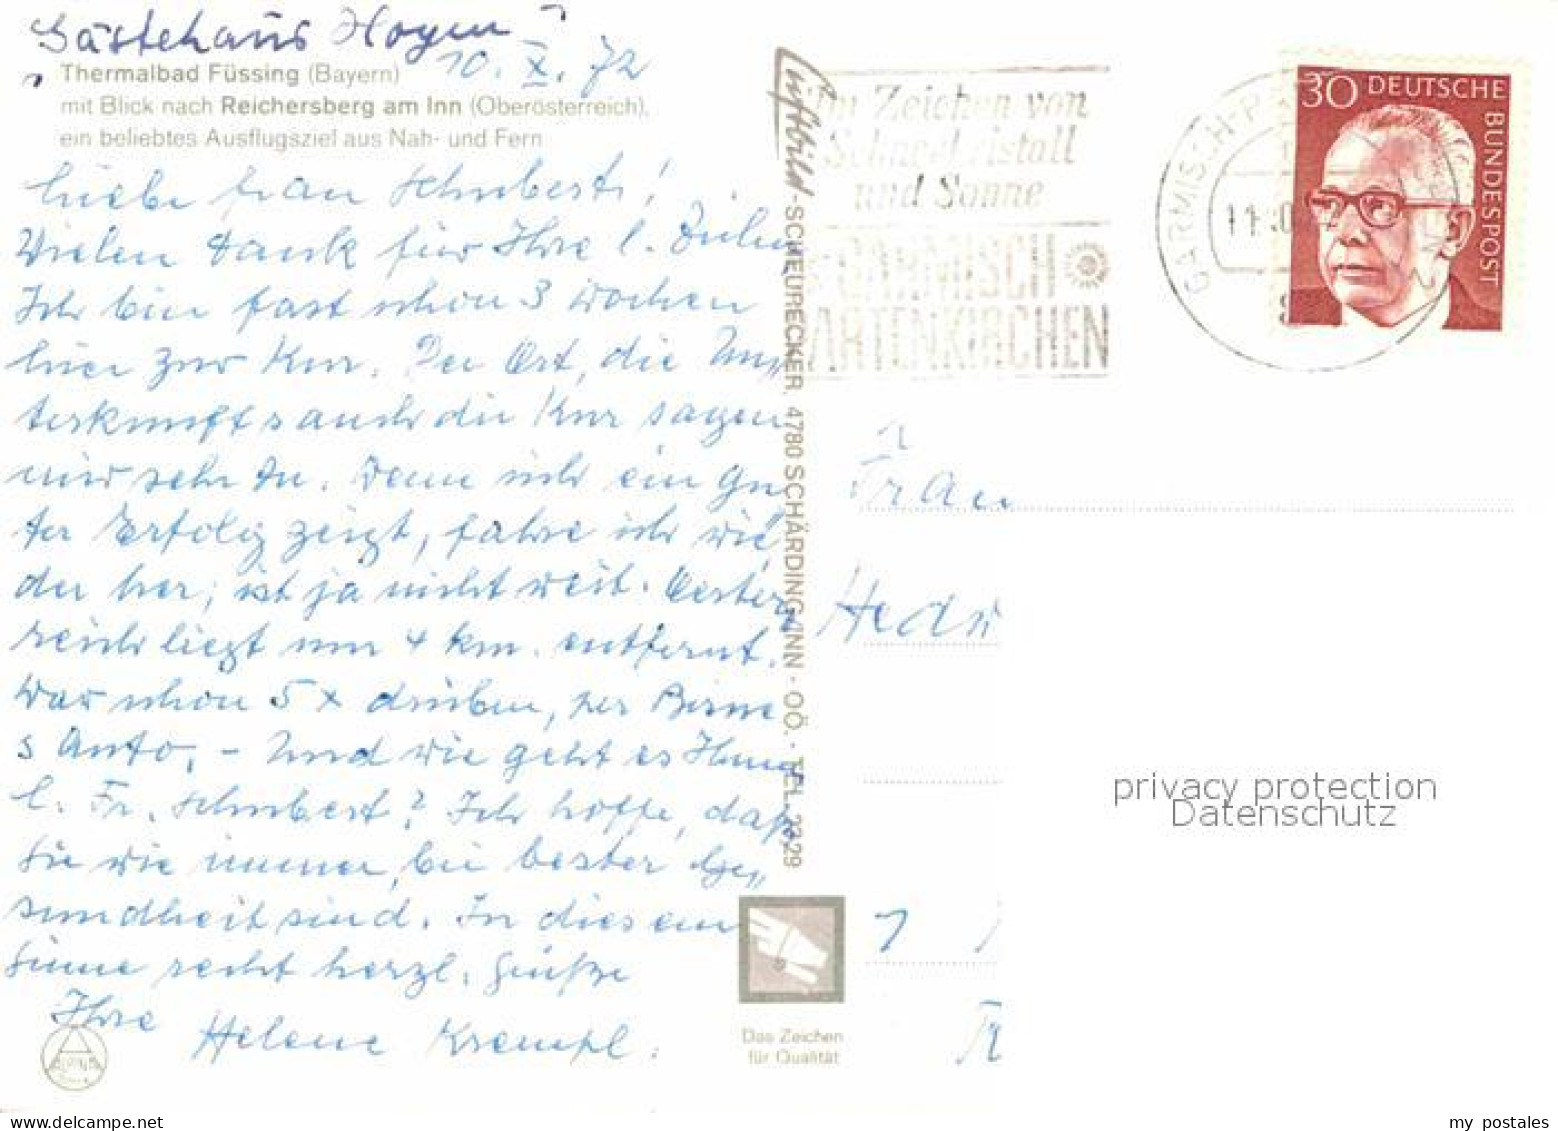 "Gästehaus Hoyer"
10. X. 72
Thermalbad Füssing (Bayern)
mit Blick nach Reichersberg am Inn (Oberösterreich),
ein beliebtes Ausflugsziel aus Nah- und Fern
Liebe Frau Schubert!
Vielen Dank für Ihre l. Zeilen
Ich bin fast schon 3 Wochen
hier zur Kur. Der Ort, die Un„
terkunft u. auch die Kur sagen
mir sehr zu. Wenn sich ein gu
ter Erfolg zeigt, fahre ich wie„
der her; ist ja nicht weit. Oester„
reich liegt nur 4 km. entfernt.
War schon 5 x drüben, per
s Auto. - Und wie geht es Ihnen
l. Fr. Schubert? Ich hoffe, daß
Sie wie immer, bei bester Ge„
sundheit sind. In diesem
Sinne recht herzl. Grüße
Ihre Helene Krempl.
Luftbild-SCHEURECKER, 4780 SCHÄRDING/INN - OÖ. - TEL. 2329
Das Zeichen
für Qualität
Im Zeichen von
Schneekristall
und Sonne
GARMISCH
PARTENKIRCHEN
GARMISCH-P
11
30 DEUTSCHE
BUNDESPOST
Frau
Hedw
privacy protection
Datenschutz
my postales